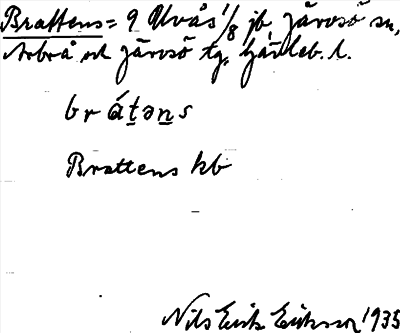 Brattens = 9 Uvås 1/8 jb Järvsö sn,
Arbrå och Järvsö tg. Gävleb. l.
brátəns
Brattens kb
Nils Erik Eriksson 1935